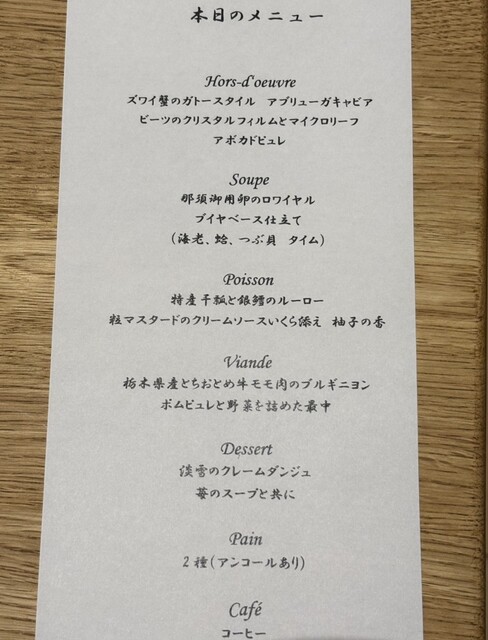 本日のメニュー
Hors-d'oeuvre
ズワイ蟹のガトースタイル アブリューガキャビア
ビーツのクリスタルフィルムとマイクロリーフ
アボカドピュレ
Soupe
那須御用卵のロワイヤル
ブイヤベース仕立て
(海老、蛤、つぶ貝 タイム)
Poisson
特産干瓢と銀鱈のルーロー
粒マスタードのクリームソースいくら添え 柚子の香
Viande
栃木県産とちおとめ牛モモ肉のブルギニヨン
ポムピュレと野菜を詰めた最中
Dessert
淡雪のクレームダンジュ
苺のスープと共に
Pain
2種(アンコールあり)
Café
コーヒー